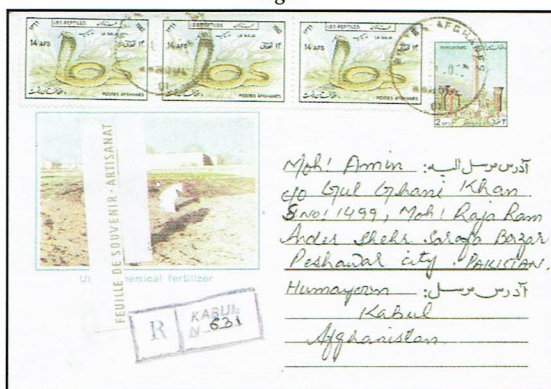 LES REPTILES
LA NAJA
14 AFS
POSTES AFGHANES
LES REPTILES
LA NAJA
14 AFS
POSTES AFGHANES
LES REPTILES
LA NAJA
14 AFS
POSTES AFGHANES
POSTES AFGHANES
2 AFS
FEUILLE DE SOUVENIR - ARTISANAT
chemical fertilizer
R KABUL
N 631
Moh! Amin آدرس مرسل الیه:
c/o Gul Ghani Khan
S.No! 1499, Moh! Raja Ram
Ander Shehr Sarafa Bazar
Peshawar city. PAKISTAN.
Humayoun آدرس مرسل:
Kabul
Afghanistan